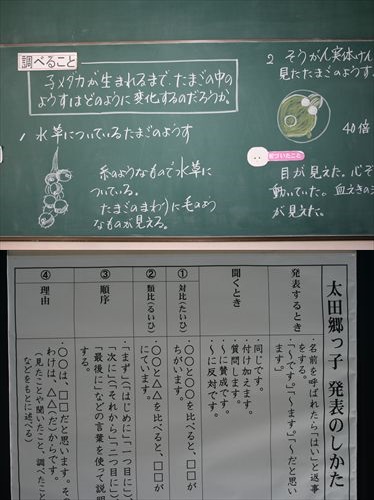 調べること
子メダカが生まれるまで、たまごの中の
ようすはどのように変化するのだろうか。
1 水草についているたまごのようす
糸のようなもので水草に
ついている。
たまごのまわりに毛のよう
なものが見える。
2 そうがん実体けん
見たたまごのようす。
40倍
気づいたこと
目が見えた。心ぞ
動いていた。血えきの
が見えた。
太田郷っ子 発表のしかた
発表するとき
・名前を呼ばれたら「はい」と返事
をする。
・「~です。」「~ます。」「~だと思い
ます。」
聞くとき
・同じです。
・付け加えます。
・質問します。
・~に賛成です。
・~に反対です。
① 対比(たいひ)
・○○と○○を比べると、□□が
ちがいます。
② 類比(るいひ)
・○○と△△を比べると、□□が
にています。
③ 順序
・「まず」「(はじめに)」「一つ目に」
「次に」「(それから)」「二つ目に」
「最後に」などの言葉を使って説明
する。
④ 理由
・○○は、□□だと思います。そ
わけは、△△(だ)からです。
(見たことや聞いたこと、調べたこと
などをもとに述べる)